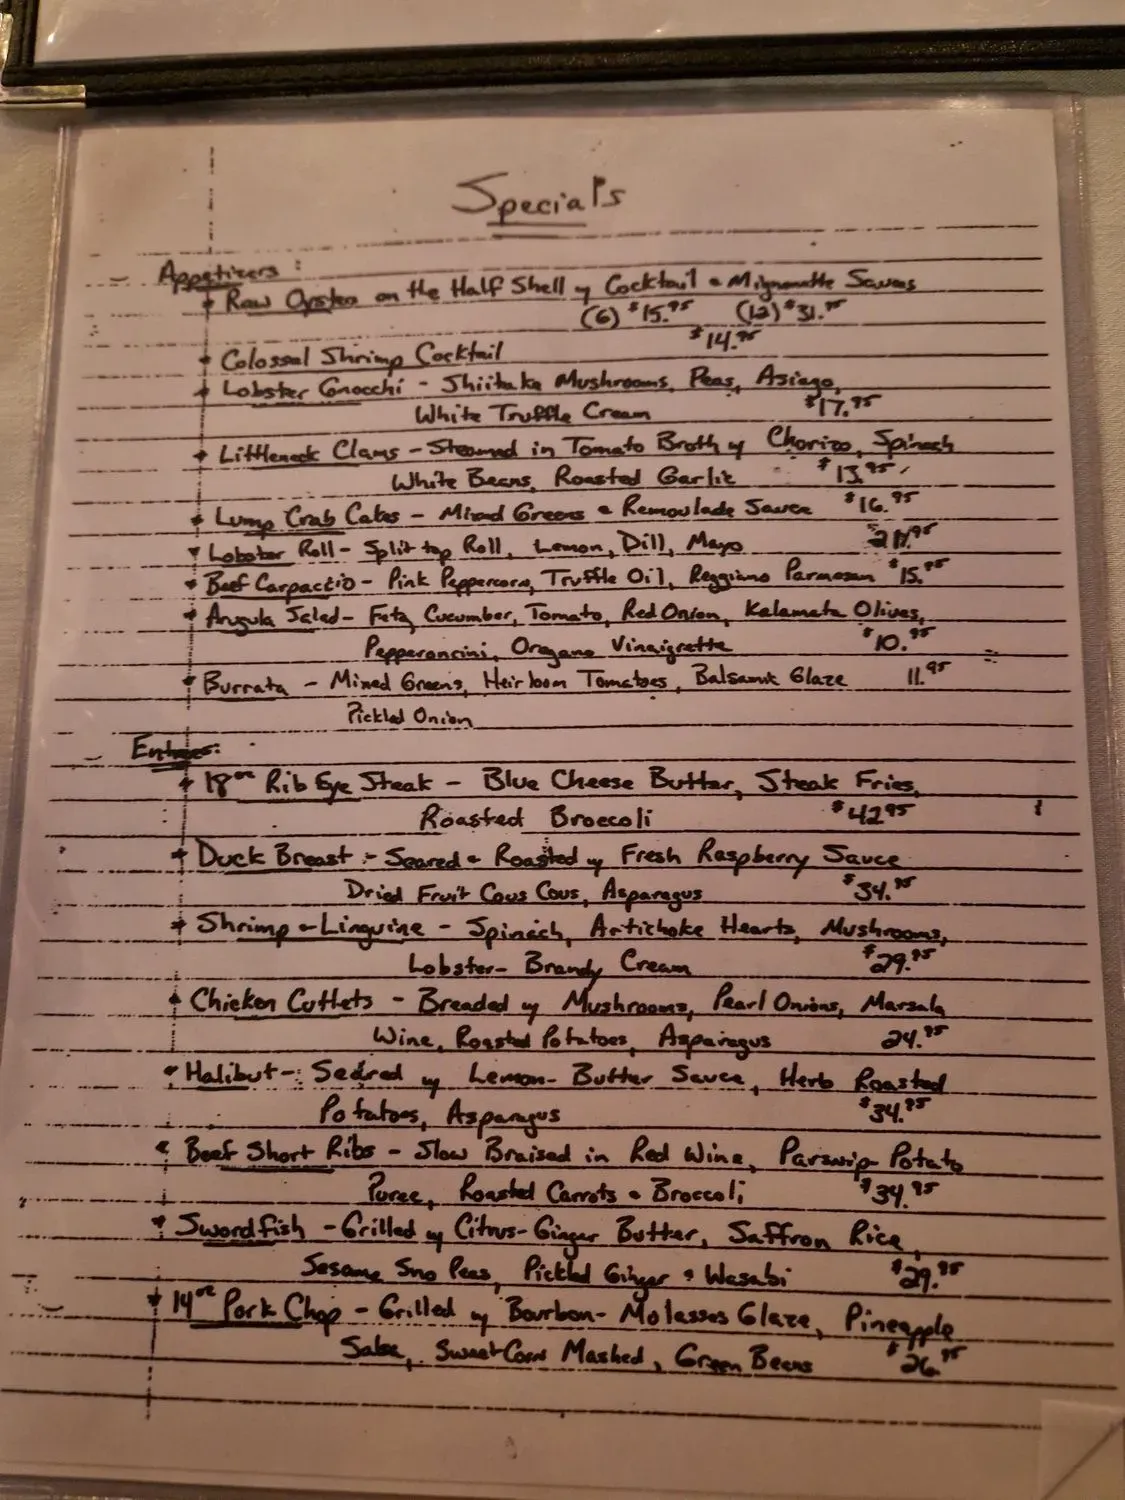 Specials
Appetizers:
Raw Oysters on the Half Shell w/ Cocktail & Mignonette Sauces
(6) $15.95 (12) $31.95
$14.95
Colossal Shrimp Cocktail
Lobster Gnocchi - Shiitake Mushrooms, Peas, Asiago,
White Truffle Cream $17.95
Littleneck Clams - Steamed in Tomato Broth w/ Chorizo, Spinach
White Beans, Roasted Garlic $13.95
Lump Crab Cakes - Mixed Greens & Remoulade Sauce $16.95
Lobster Roll - Split top Roll, Lemon, Dill, Mayo
Beef Carpaccio - Pink Peppercorn, Truffle Oil, Reggiano Parmesan $15.95
Arugula Salad - Feta, Cucumber, Tomato, Red Onion, Kalamata Olives,
Pepperoncini, Oregano Vinaigrette $10.95
Burrata - Mixed Greens, Heirloom Tomatoes, Balsamic Glaze 11.95
Pickled Onion
Entrees:
18oz Rib Eye Steak - Blue Cheese Butter, Steak Fries,
Roasted Broccoli $42.95
Duck Breast - Seared & Roasted w/ Fresh Raspberry Sauce
Dried Fruit Cous Cous, Asparagus $34.95
Shrimp & Linguine - Spinach, Artichoke Hearts, Mushrooms,
Lobster-Brandy Cream $29.95
Chicken Cutlets - Breaded w/ Mushrooms, Pearl Onions, Marsala
Wine, Roasted Potatoes, Asparagus 24.95
Halibut - Seared w/ Lemon-Butter Sauce, Herb Roasted
Potatoes, Asparagus $34.95
Beef Short Ribs - Slow Braised in Red Wine, Parsnip-Potato
Puree, Roasted Carrots & Broccoli $34.95
Swordfish - Grilled w/ Citrus-Ginger Butter, Saffron Rice,
Sesame Sno Peas, Pickled Ginger & Wasabi $29.95
14oz Pork Chop - Grilled w/ Bourbon-Molasses Glaze, Pineapple
Salsa, Sweet Corn Mashed, Green Beans $26.95